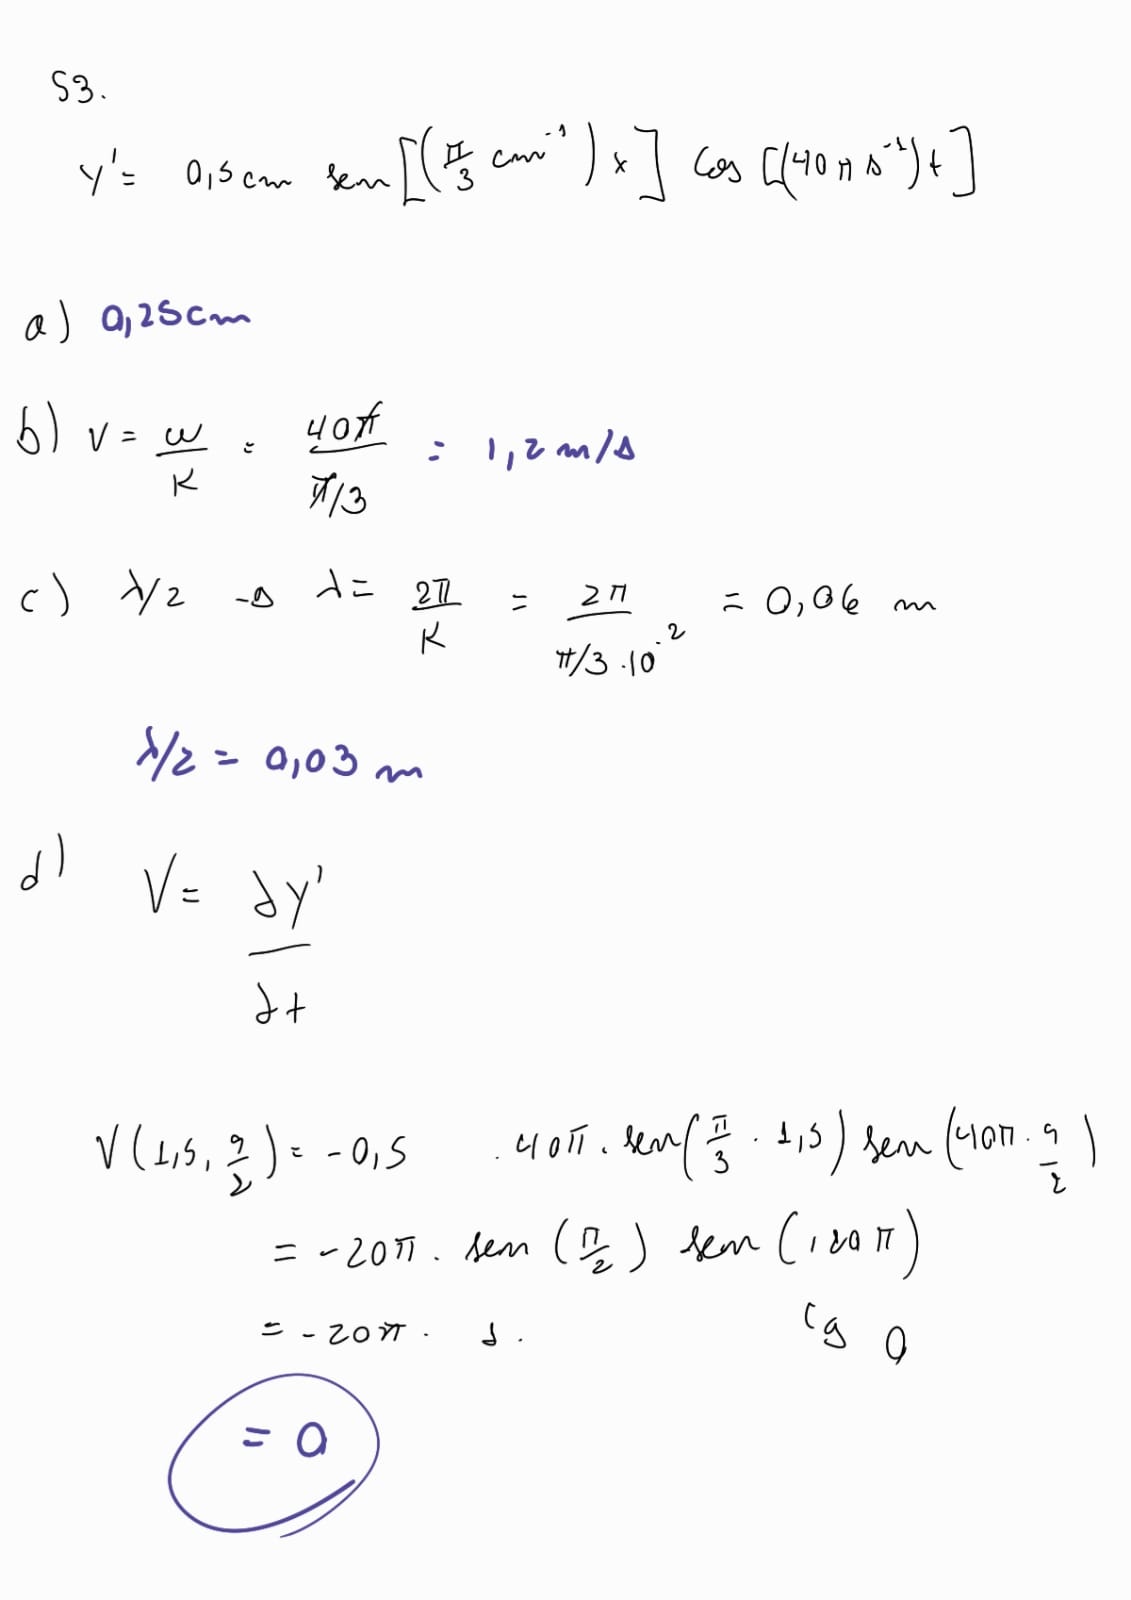 53.
y' = 0,5 cm sen [(π/3 cm⁻¹) x] cos [(40 π s⁻¹) t]
a) 0,25 cm
b) v = ω/K = 40π/π/3 = 1,2 m/s
c) λ/2 → λ = 2π/K = 2π/π/3 · 10⁻² = 0,06 m
λ/2 = 0,03 m
d) V = ∂y'/∂t
V(1,5, 9/2) = -0,5 . 40π . sen(π/3 · 1,5) sen(40π · 9/2)
= -20π . sen (π/2) sen (180 π)
= -20π . 1 . ↳ 0
= 0